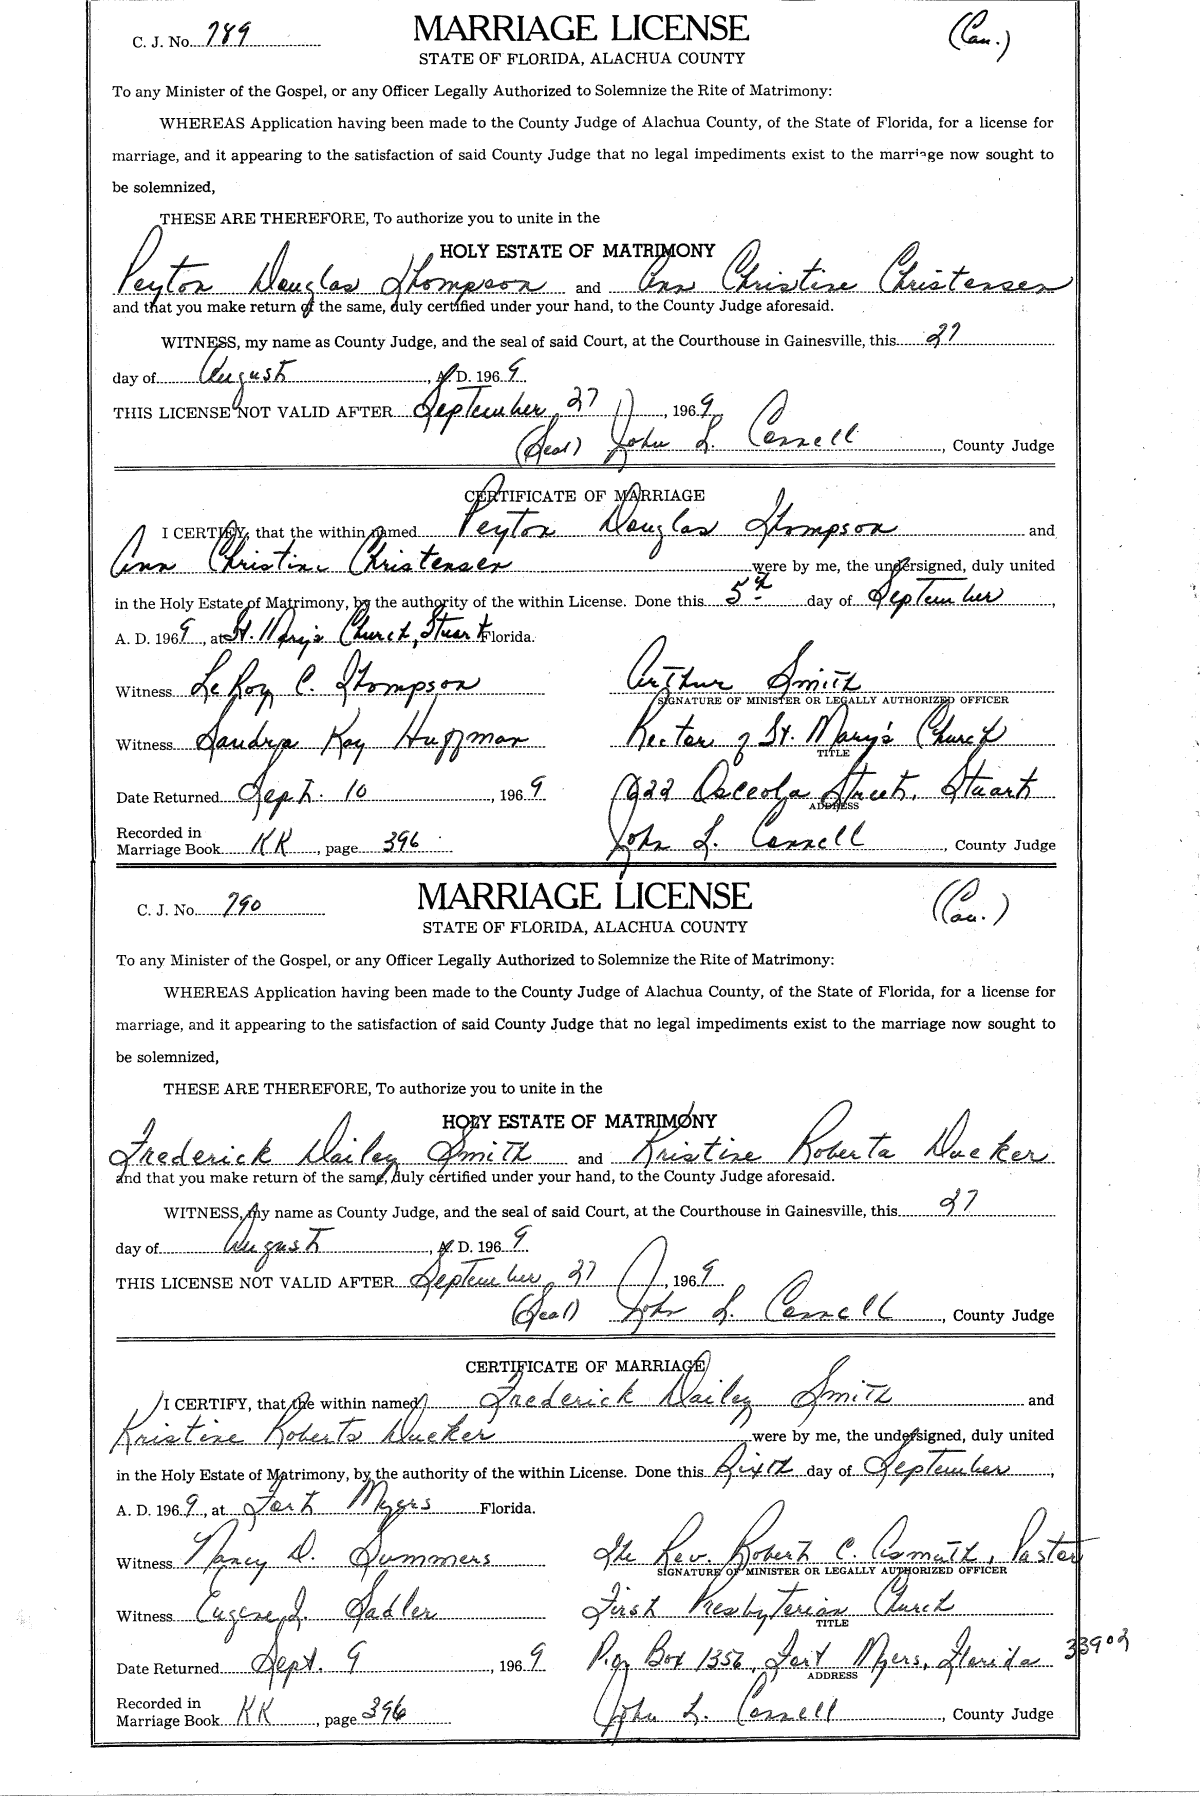 C. J. No. 789 MARRIAGE LICENSE (Cau.)
STATE OF FLORIDA, ALACHUA COUNTY
To any Minister of the Gospel, or any Officer Legally Authorized to Solemnize the Rite of Matrimony:
WHEREAS Application having been made to the County Judge of Alachua County, of the State of Florida, for a license for
marriage, and it appearing to the satisfaction of said County Judge that no legal impediments exist to the marriage now sought to
be solemnized,
THESE ARE THEREFORE, To authorize you to unite in the
HOLY ESTATE OF MATRIMONY
Peyton Douglas Thompson and Ann Christine Christensen
and that you make return of the same, duly certified under your hand, to the County Judge aforesaid.
WITNESS, my name as County Judge, and the seal of said Court, at the Courthouse in Gainesville, this 27
day of August, A. D. 1969
THIS LICENSE NOT VALID AFTER September 27, 1969
(Seal) John L. Connell, County Judge
CERTIFICATE OF MARRIAGE
I CERTIFY, that the within named Peyton Douglas Thompson and
Ann Christine Christensen were by me, the undersigned, duly united
in the Holy Estate of Matrimony, by the authority of the within License. Done this 5th day of September,
A. D. 1969, at St. Mary's Church, Stuart Florida.
Witness LeRoy C. Thompson Arthur Smith
SIGNATURE OF MINISTER OR LEGALLY AUTHORIZED OFFICER
Witness Sandra Kay Huffman Rector of St. Mary's Church
TITLE
Date Returned Sept. 10, 1969 622 Osceola Street, Stuart
ADDRESS
Recorded in
Marriage Book KK, page 396 John L. Connell, County Judge
C. J. No. 790 MARRIAGE LICENSE (Cau.)
STATE OF FLORIDA, ALACHUA COUNTY
To any Minister of the Gospel, or any Officer Legally Authorized to Solemnize the Rite of Matrimony:
WHEREAS Application having been made to the County Judge of Alachua County, of the State of Florida, for a license for
marriage, and it appearing to the satisfaction of said County Judge that no legal impediments exist to the marriage now sought to
be solemnized,
THESE ARE THEREFORE, To authorize you to unite in the
HOLY ESTATE OF MATRIMONY
Frederick Dailey Smith and Kristine Roberta Ducker
and that you make return of the same, duly certified under your hand, to the County Judge aforesaid.
WITNESS, my name as County Judge, and the seal of said Court, at the Courthouse in Gainesville, this 27
day of August, A. D. 1969
THIS LICENSE NOT VALID AFTER September 27, 1969
(Seal) John L. Connell, County Judge
CERTIFICATE OF MARRIAGE
I CERTIFY, that the within named Frederick Dailey Smith and
Kristine Roberta Ducker were by me, the undersigned, duly united
in the Holy Estate of Matrimony, by the authority of the within License. Done this Sixth day of September,
A. D. 1969, at Fort Myers Florida.
Witness Nancy D. Summers The Rev. Robert C. Asmuth, Pastor
SIGNATURE OF MINISTER OR LEGALLY AUTHORIZED OFFICER
Witness Eugene L. Sadler First Presbyterian Church
TITLE
Date Returned Sept. 9, 1969 P.O. Box 1356, Fort Myers, Florida 33902
ADDRESS
Recorded in
Marriage Book KK, page 396 John L. Connell, County Judge